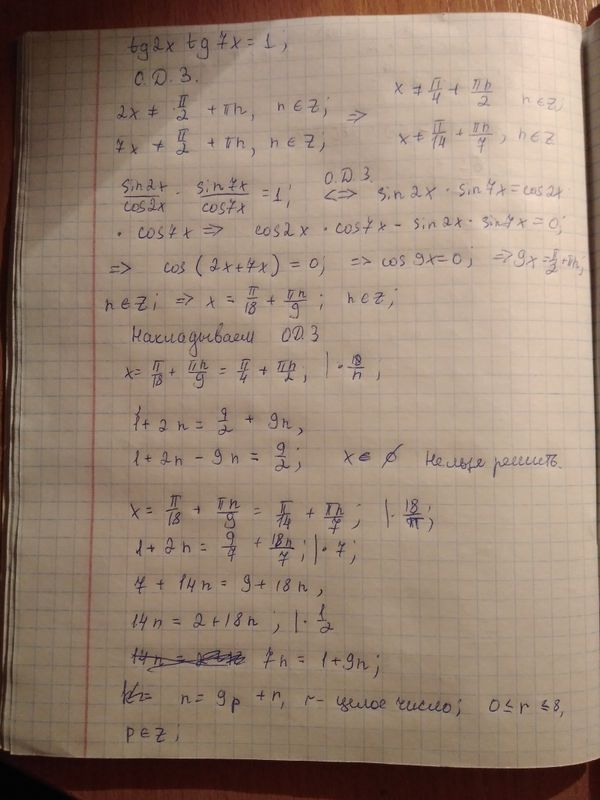 tg2x tg7x = 1;
О.Д.З.
2x ≠ π/2 + πn, n ∈ Z; => x ≠ π/4 + πn/2 n ∈ Z;
7x ≠ π/2 + πn, n ∈ Z; x ≠ π/14 + πn/7, n ∈ Z
sin2x/cos2x · sin7x/cos7x = 1; О.Д.З. <=> sin2x · sin7x = cos2x
· cos7x => cos2x · cos7x - sin2x · sin7x = 0;
=> cos(2x+7x) = 0; => cos9x = 0; => 9x = π/2 + πn;
n ∈ Z; => x = π/18 + πn/9; n ∈ Z;
Накладываем ОДЗ
x = π/18 + πn/9 = π/4 + πn/2; | · 18/π;
1 + 2n = 9/2 + 9n,
1 + 2n - 9n = 9/2; x ∈ ∅ Нельзя решить.
x = π/18 + πn/9 = π/14 + πn/7; | · 18/π;
1 + 2n = 9/7 + 18n/7; | · 7;
7 + 14n = 9 + 18n,
14n = 2 + 18n; | · 1/2
7n = 1 + 9n;
n = 9p + r, r - целое число; 0 ≤ r ≤ 8,
p ∈ Z;